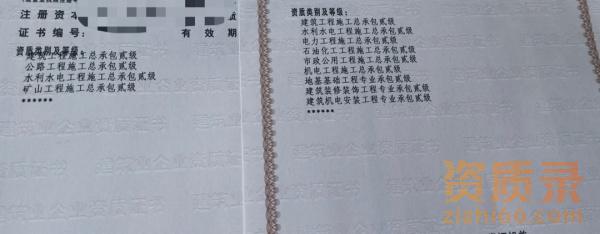 注册资本
证书编号:
有效期
资质类别及等级:
建筑工程施工总承包贰级
公路工程施工总承包贰级
水利水电工程施工总承包贰级
矿山工程施工总承包贰级
******
资质类别及等级:
建筑工程施工总承包贰级
水利水电工程施工总承包贰级
电力工程施工总承包贰级
石油化工工程施工总承包贰级
市政公用工程施工总承包贰级
机电工程施工总承包贰级
地基基础工程专业承包贰级
建筑装修装饰工程专业承包贰级
建筑机电安装工程专业承包贰级
******
资质录
zizhi60.com